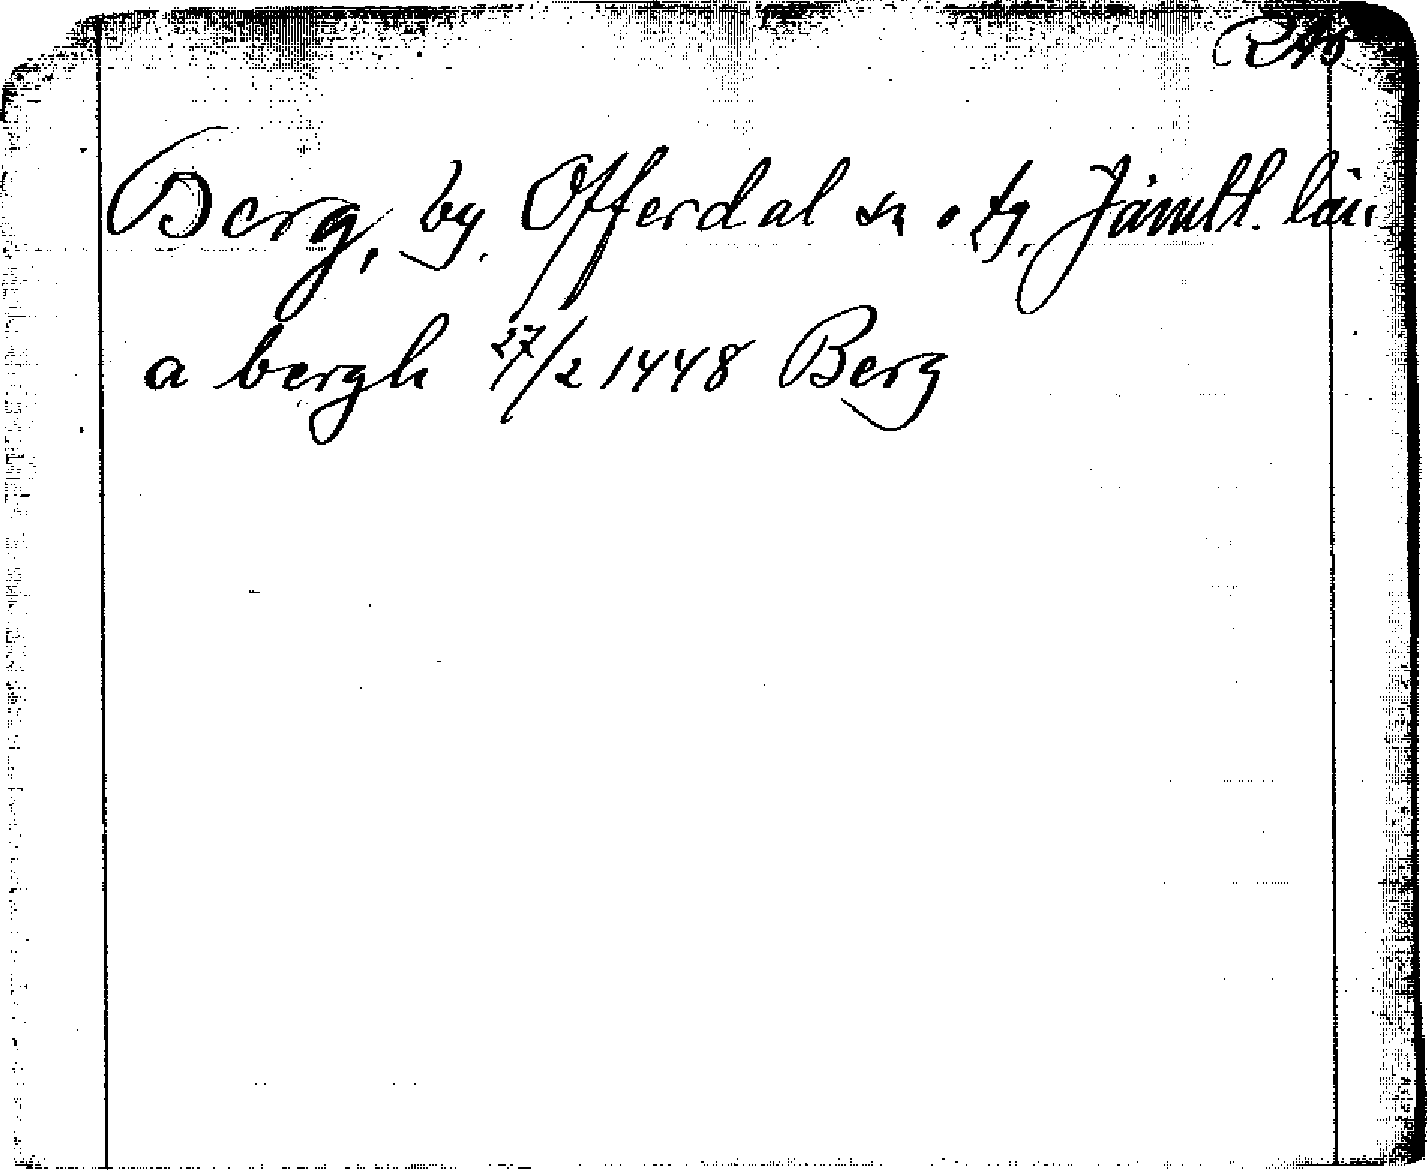 Berg, by. Offerdal sn o tg, Jämtl. län
a bergh 27/2 1448 Berg